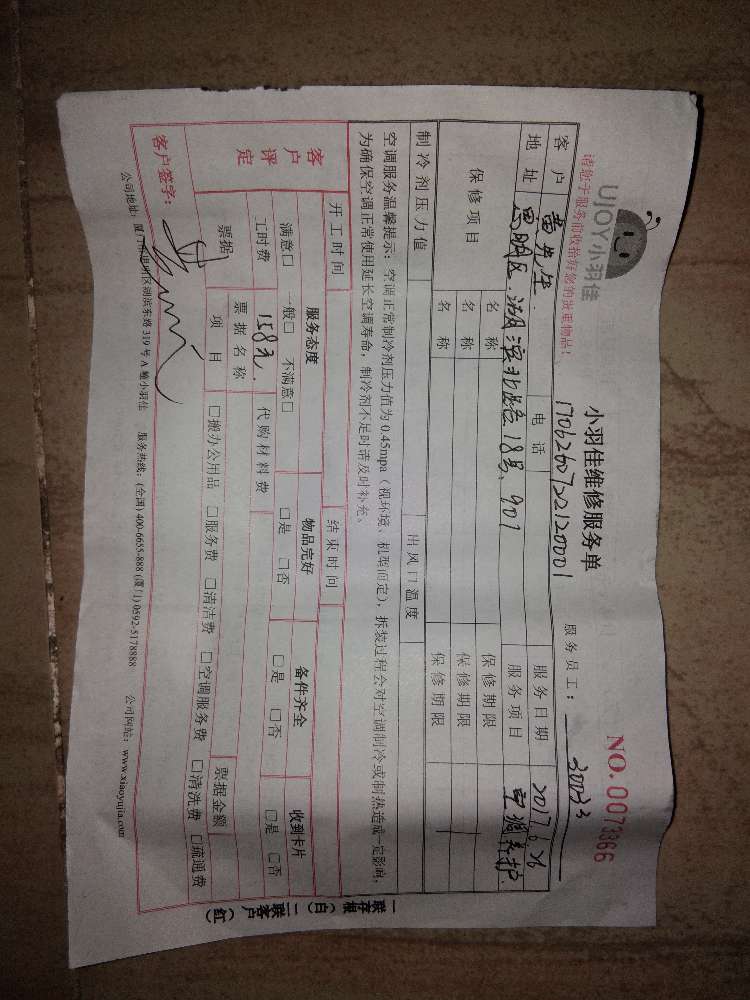 UJOY小羽佳
请您于服务前收拾好您的贵重物品!
小羽佳维修服务单
NO. 0073366
服务员工: 30033
客户 雷先生 电话 1706260722120001 服务日期 2017.6.26
地址 思明区.湖滨北路18号.901 服务项目 空调养护
保修项目 名称 保修期限
名称 保修期限
名称 保修期限
制冷剂压力值 出风口温度
空调服务温馨提示:空调正常制冷剂压力值为0.45mpa(视环境、机型而定),拆装过程会对空调制冷或制热造成一定影响,
为确保空调正常使用延长空调寿命,制冷剂不足时请及时补充。
开工时间 结束时间
客户评定 服务态度 物品完好 备件齐全 收到卡片
满意□ 一般□ 不满意□ □是 □否 □是 □否 □是 □否
工时费 158元. 代购材料费
票据 票据名称 票据金额
项目 □搬办公用品 □服务费 □清洁费 □空调服务费 □清洗费 □疏通费
客户签字:
公司地址:厦门市思明区湖滨东路319号A幢小羽佳 服务热线:(全国) 400-6655-888 (厦门) 0592-5178888 公司网站:www.xiaoyujia.com
一联存根(白) 二联客户(红)